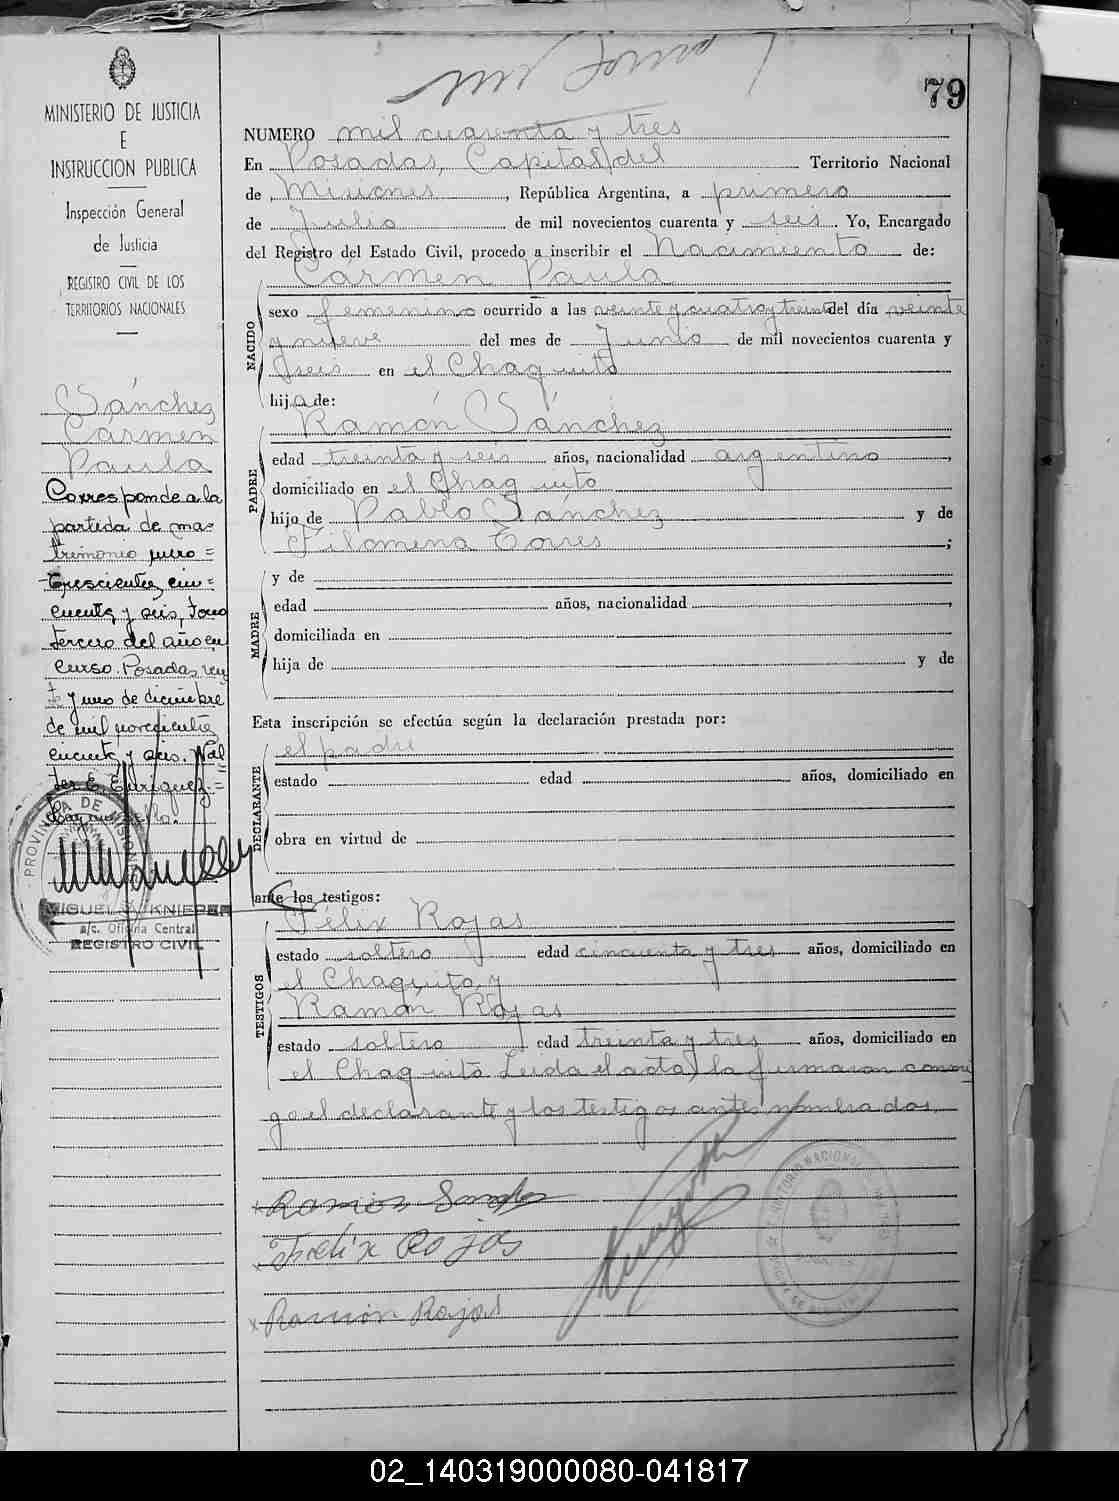 79
MINISTERIO DE JUSTICIA
E
INSTRUCCION PUBLICA
Inspección General
de Justicia
REGISTRO CIVIL DE LOS
TERRITORIOS NACIONALES
Sánchez
Cármen
Paula
Corresponde a la
partida de ma-
trimonio número =
trescientos cin=
cuenta y seis, tomo
tercero del año en
curso. Posadas, vein
te y uno de diciembre
de mil novecientos
cincuenta y seis. Wal
ter E. Enriquez =
PROVINCIA DE MISIONES
MIGUEL KNIEPER
a/c. Oficina Central
REGISTRO CIVIL
NUMERO mil cuarenta y tres
En Posadas, Capital del Territorio Nacional
de Misiones, República Argentina, a primero
de Julio de mil novecientos cuarenta y seis. Yo, Encargado
del Registro del Estado Civil, procedo a inscribir el Nacimiento de:
Carmen Paula
NACIDO
sexo femenino ocurrido a las veinte y cuatro y treinta del día veinte
y nueve del mes de Junio de mil novecientos cuarenta y
seis en el Chaquito
hija de:
Ramón Sánchez
PADRE
edad treinta y seis años, nacionalidad argentino,
domiciliado en el Chaquito
hijo de Pablo Sánchez y de
Filomena Torres;
MADRE
y de
edad años, nacionalidad,
domiciliada en
hija de y de
Esta inscripción se efectúa según la declaración prestada por:
el padre
DECLARANTE
estado edad años, domiciliado en
obra en virtud de
ante los testigos:
Félix Rojas
TESTIGOS
estado soltero edad cincuenta y tres años, domiciliado en
el Chaquito, y
Ramón Rojas
estado soltero edad treinta y tres años, domiciliado en
el Chaquito Leida el acta, la firmaron conmi
go el declarante y los testigos antes nombrados.
x Ramon Sanchez
x Felix Rojas
x Ramón Rojas
02_140319000080-041817